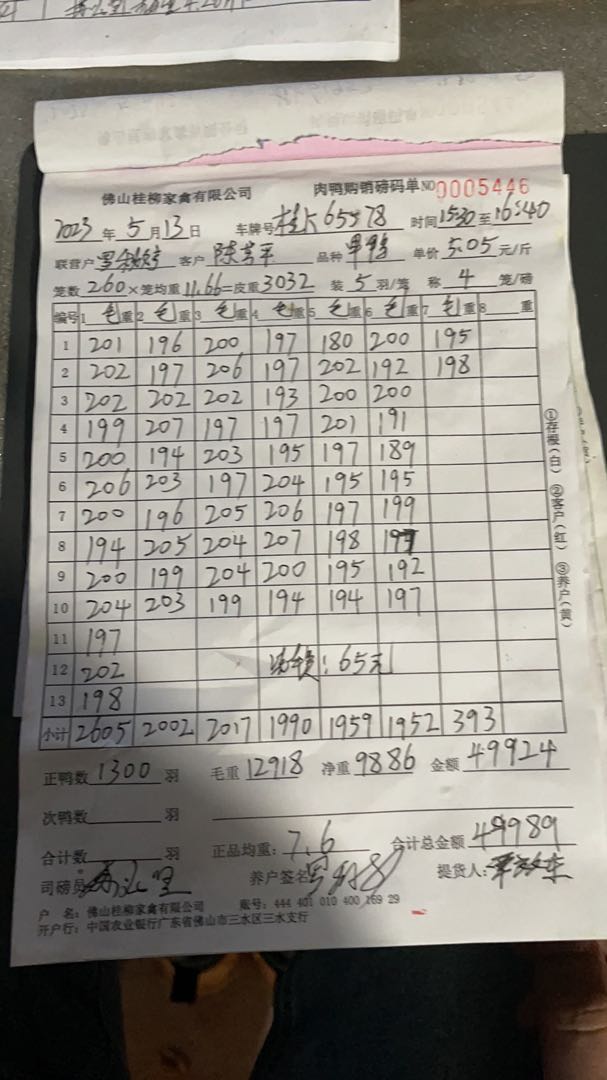 佛山桂柳家禽有限公司 肉鸭购销磅码单 NO 0005446
2023 年 5 月 13 日 车牌号 桂A 65878 时间 15:30 至 16:40
联营户 客户 陈 平 品种 单价 5.05 元/斤
笼数 260 ×笼均重 11.66 =皮重 3032 装 5 羽/笼 称 4 笼/磅
编号 1 毛重 2 毛重 3 毛重 4 毛重 5 毛重 6 毛重 7 毛重 8 重
1 201 196 200 197 180 200 195
2 202 197 206 197 202 192 198
3 202 202 202 193 200 200
4 199 207 197 197 201 191
5 200 194 203 195 197 189
6 206 203 197 204 195 195
7 200 196 205 206 197 199
8 194 205 204 207 198 197
9 200 199 204 200 195 192
10 204 203 199 194 194 197
11 197
12 202 : 65元
13 198
小计 2605 2002 2017 1990 1959 1952 393
正鸭数 1300 羽 毛重 12918 净重 9886 金额 49924
次鸭数 羽
合计数 羽 正品均重: 7.6 合计总金额 49989
司磅员 养户签名 提货人:
户 名: 佛山桂柳家禽有限公司 账号: 444 401 010 400 169 29
开户行: 中国农业银行广东省佛山市三水区三水支行
①存根(白) ②客户(红) ③养户(黄)